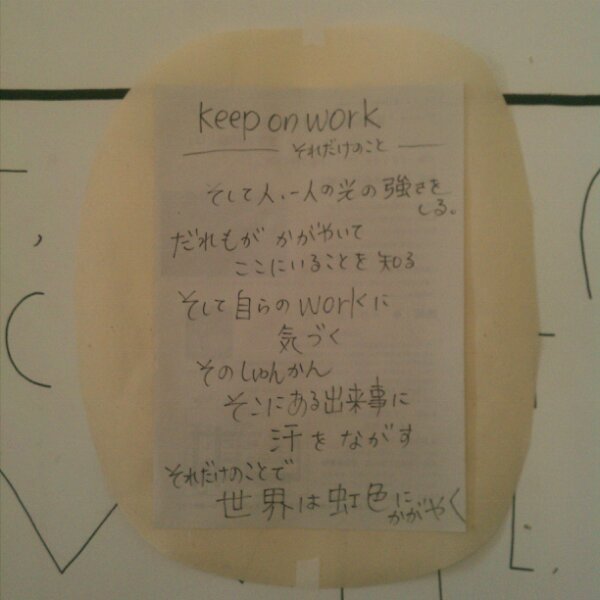 keep on work
それだけのこと
そして人、一人の光の強さを
しる。
だれもが かがやいて
ここにいることを 知る
そして自らのworkに
気づく
そのしゅんかん
そこにある出来事に
汗を ながす
それだけのことで
世界は虹色に
かがやく